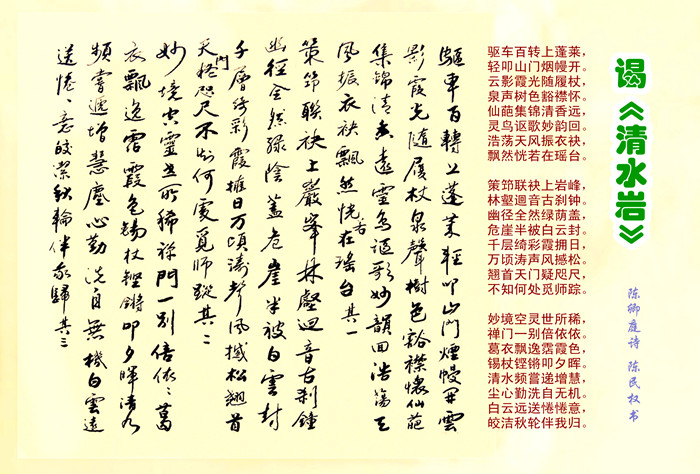 谒《清水岩》
驱车百转上蓬莱，
轻叩山门烟幔开。
云影霞光随履杖，
泉声树色豁襟怀。
仙葩集锦清香远，
灵鸟讴歌妙韵回。
浩荡天风振衣袂，
飘然恍若在瑶台。
策笻联袂上岩峰，
林壑迴音古刹钟。
幽径全然绿荫盖，
危崖半被白云封。
千层绮彩霞拥日，
万顷涛声风撼松。
翘首天门疑咫尺，
不知何处觅师踪。
妙境空灵世所稀，
禅门一别倍依依。
葛衣飘逸霑霞色，
锡杖铿锵叩夕晖。
清水频嘗递增慧，
尘心勤洗自无机。
白云远送惓惓意，
皎洁秋轮伴我归。
陈卿庭诗 陈民权书
驅車百轉上蓬莱輕叩山門煙幔開雲
影霞光隨履杖泉聲樹色豁襟懷仙葩
集錦清香遠靈鸟謳歌妙韻回浩蕩天
風振衣袂飄然恍若在瑶台其一
策笻聯袂上巖峯林壑迴音古刹鐘
幽径全然綠陰蓋危崖半被白雲封
千層绮彩霞擁日万頃濤聲風撼松翘首
天門咫尺不知何處覓師蹤其二
妙境空靈世所稀禅門一别倍依〻葛
衣飄逸霑霞色錫杖鏗鏘叩夕暉清水
頻嘗遞增慧塵心勤洗自無機白雲遠
送惓〻意皎潔秋輪伴我歸其三